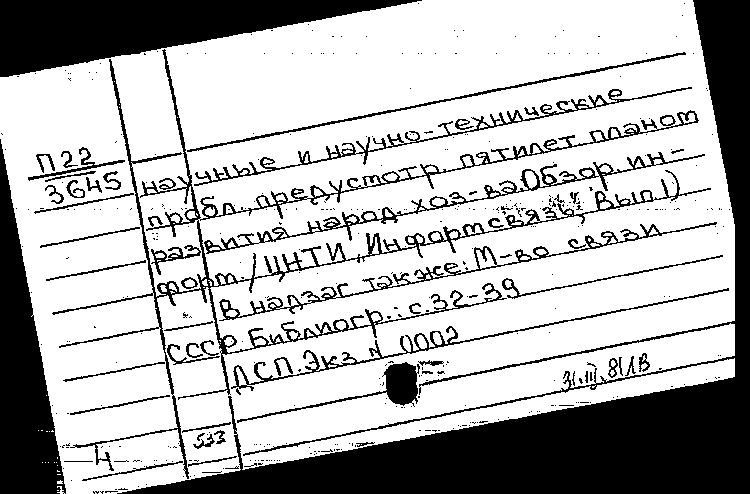 П22
3645
научные и научно-технические
пробл., предусмотр. пятилет. планом
развития народ. хоз-ва. Обзор. ин-
форм. / ЦНТИ „Информсвязь“, Вып 1)
В надзаг также: М-во связи
СССР. Библиогр.: с. 32-39
ДСП. Экз № 0002
31.III.81 ЛВ.
533
4